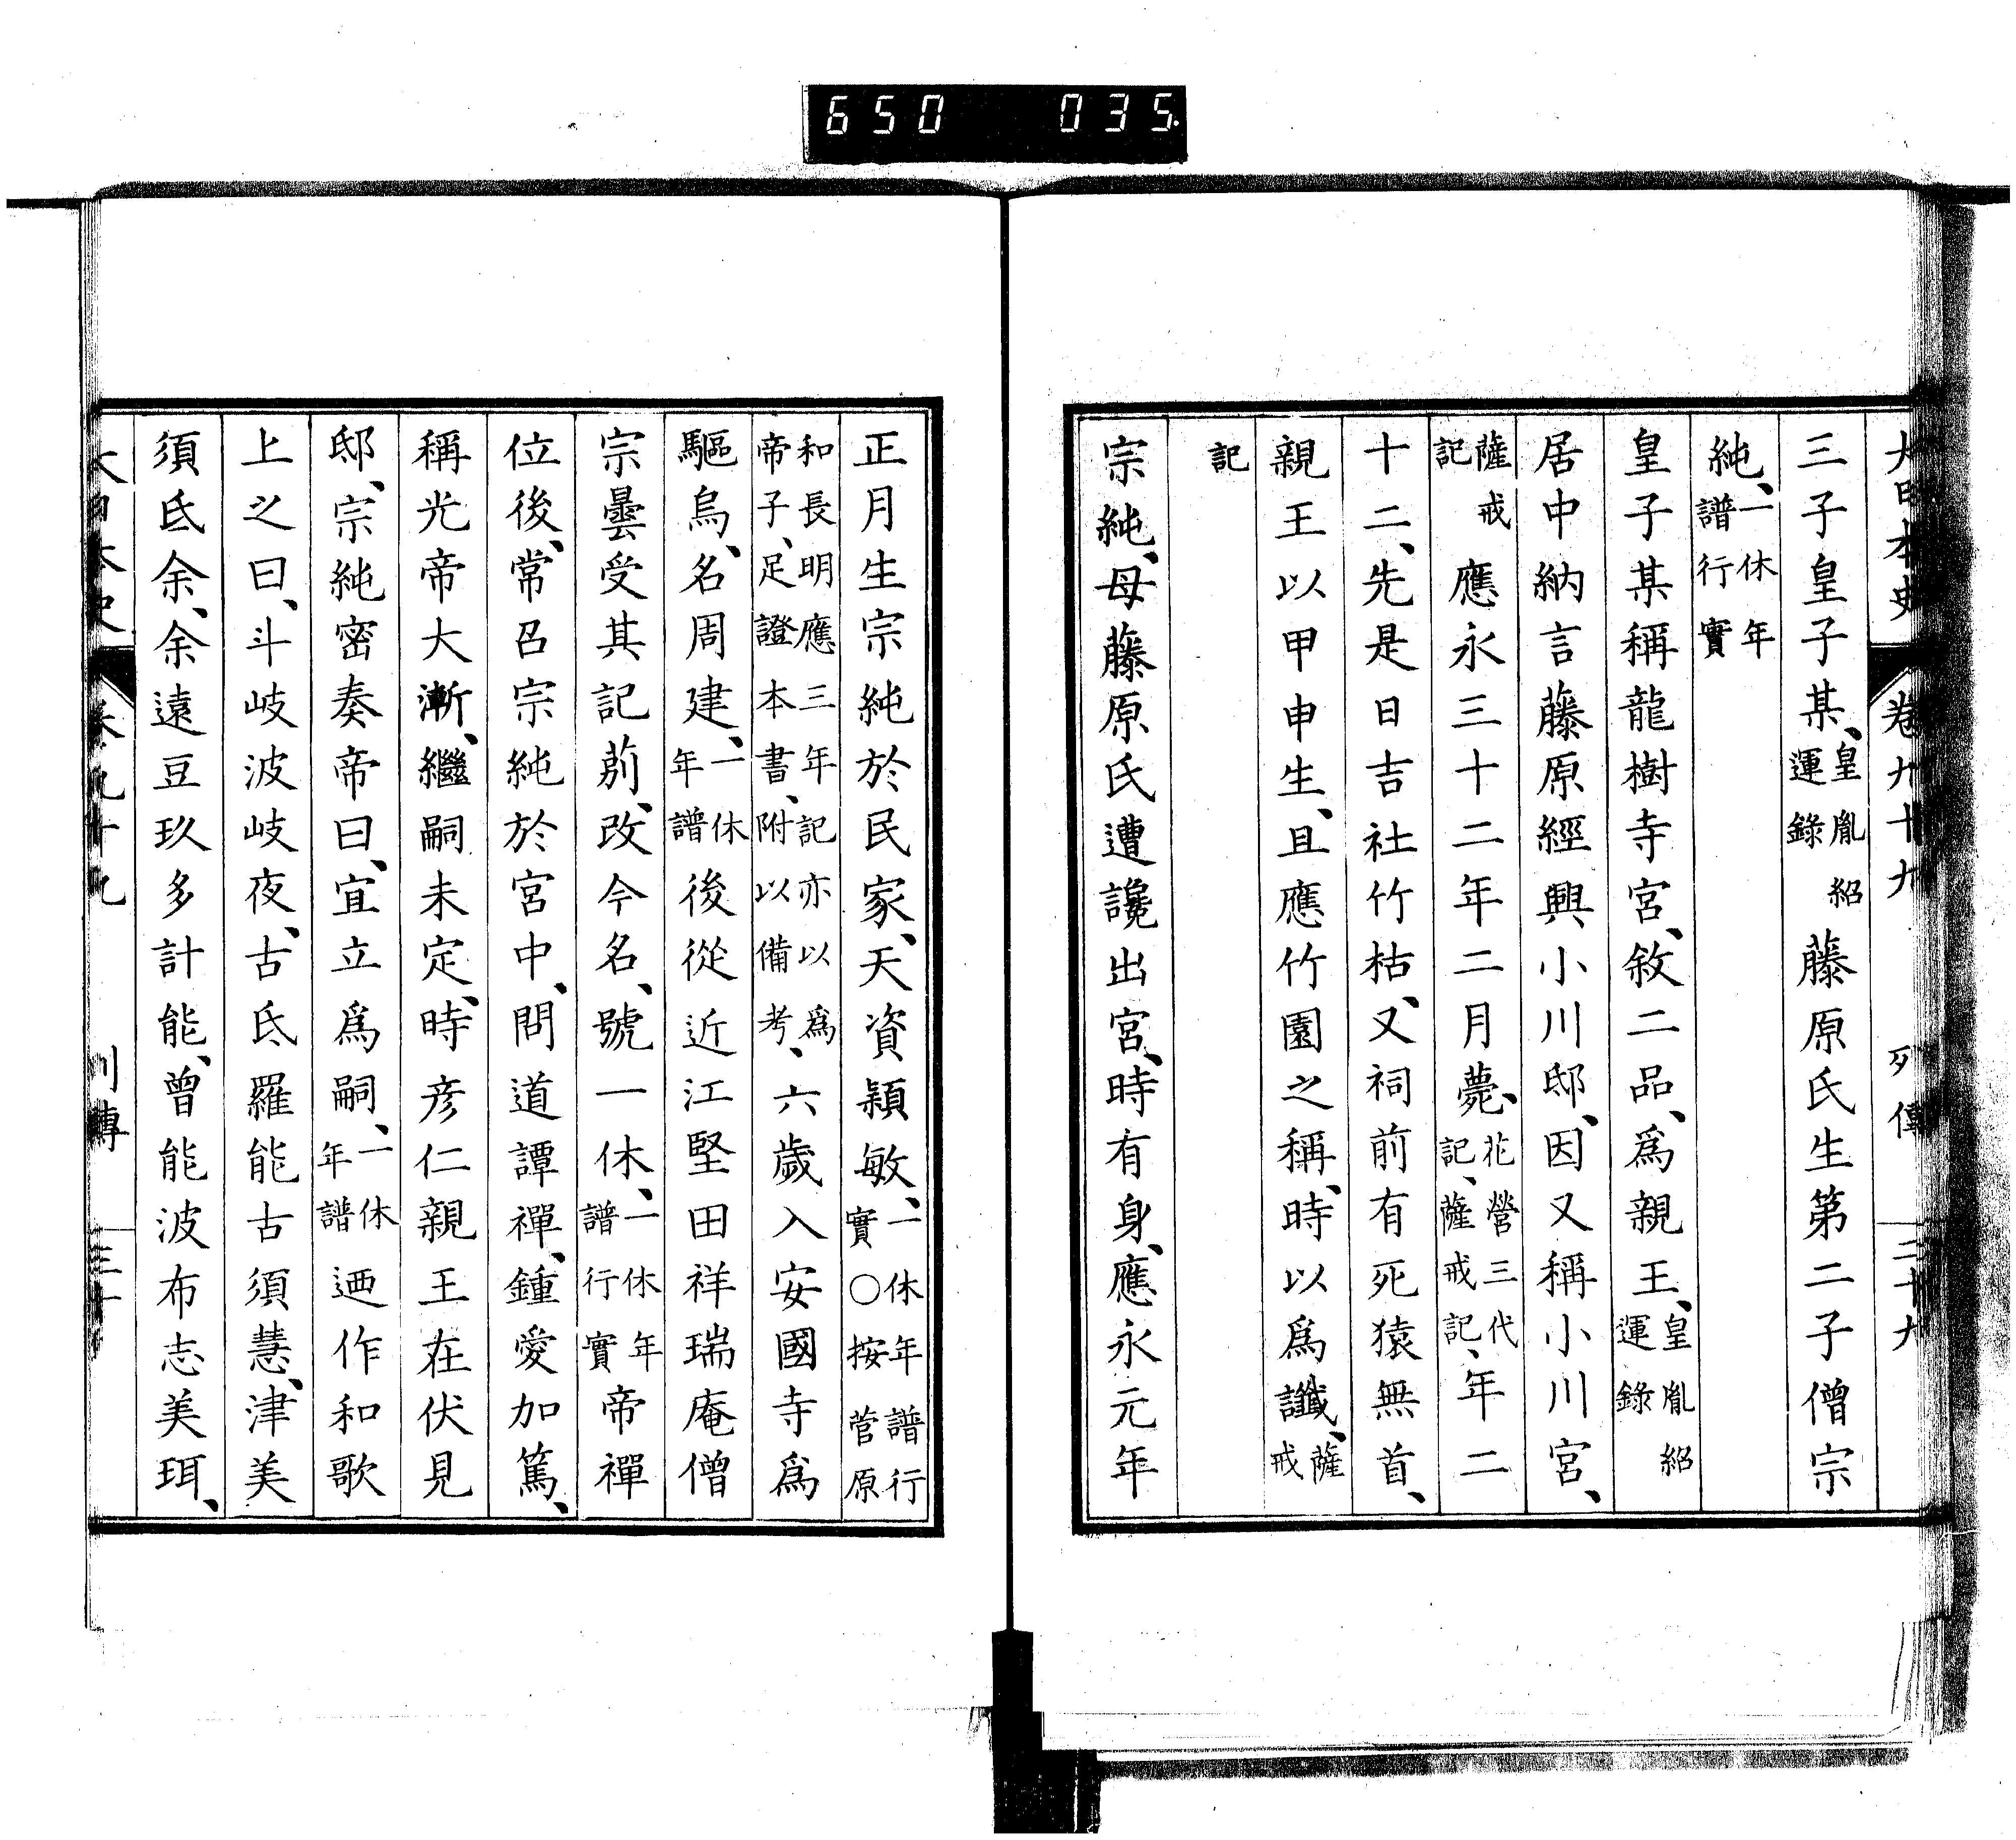 650 035.
大日本史 卷九十九 列傳 二十九
三子皇子某、皇胤紹運錄藤原氏生第二子僧宗
純、一休年譜行實
皇子某稱龍樹寺宮、敘二品、爲親王、皇胤紹運錄
居中納言藤原經興小川邸、因又稱小川宮、
薩戒記應永三十二年二月薨、花營三代記、薩戒記、年二
十二、先是日吉社竹枯、又祠前有死猿無首、
親王以甲申生、且應竹園之稱、時以爲讖、薩戒
記
宗純、母藤原氏遭讒出宮、時有身、應永元年
正月生宗純於民家、天資穎敏、一休年譜行實○按菅原
和長明應三年記亦以爲帝子、足證本書、附以備考、六歲入安國寺爲
驅烏、名周建、一休年譜後從近江堅田祥瑞庵僧
宗曇受其記莂、改今名、號一休、一休年譜行實帝禪
位後、常召宗純於宮中、問道譚禪、鍾愛加篤、
稱光帝大漸、繼嗣未定、時彦仁親王在伏見
邸、宗純密奏帝曰、宜立爲嗣、一休年譜迺作和歌
上之曰、斗岐波岐夜、古氐羅能古須慧、津美
須氐余、余遠豆玖多計能、曾能波布志美珥、
大日本史 卷九十九 列傳 三十